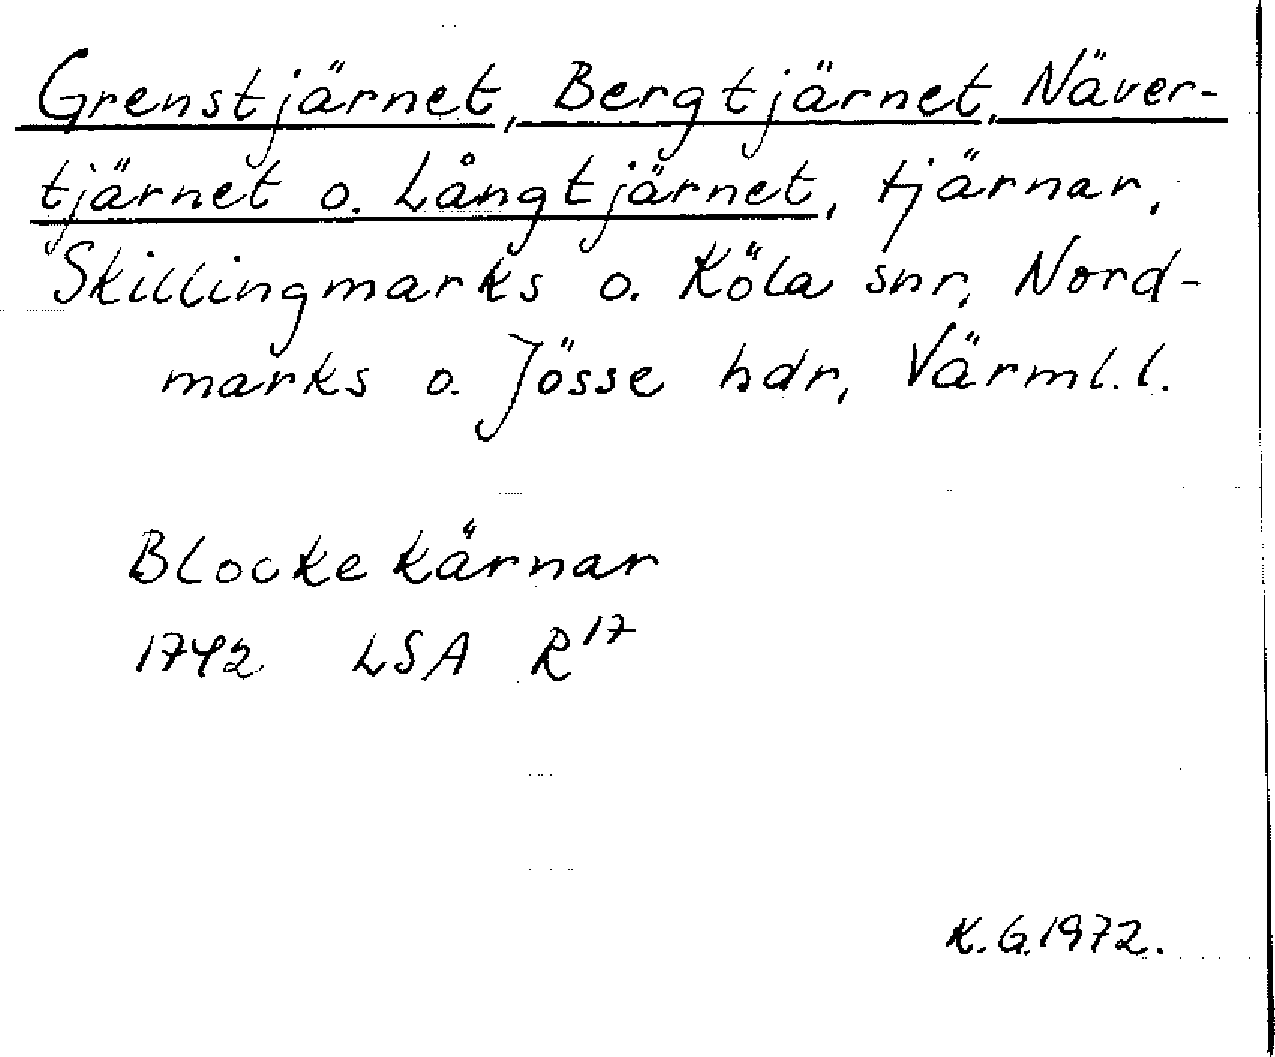 Grenstjärnet, Bergtjärnet, Näver-
tjärnet o. Långtjärnet, tjärnar,
Skillingmarks o. Köla snr, Nord-
marks o. Jösse hdr, Värml. l.
Blockekärnar
1742 LSA R17
K.G.1972.